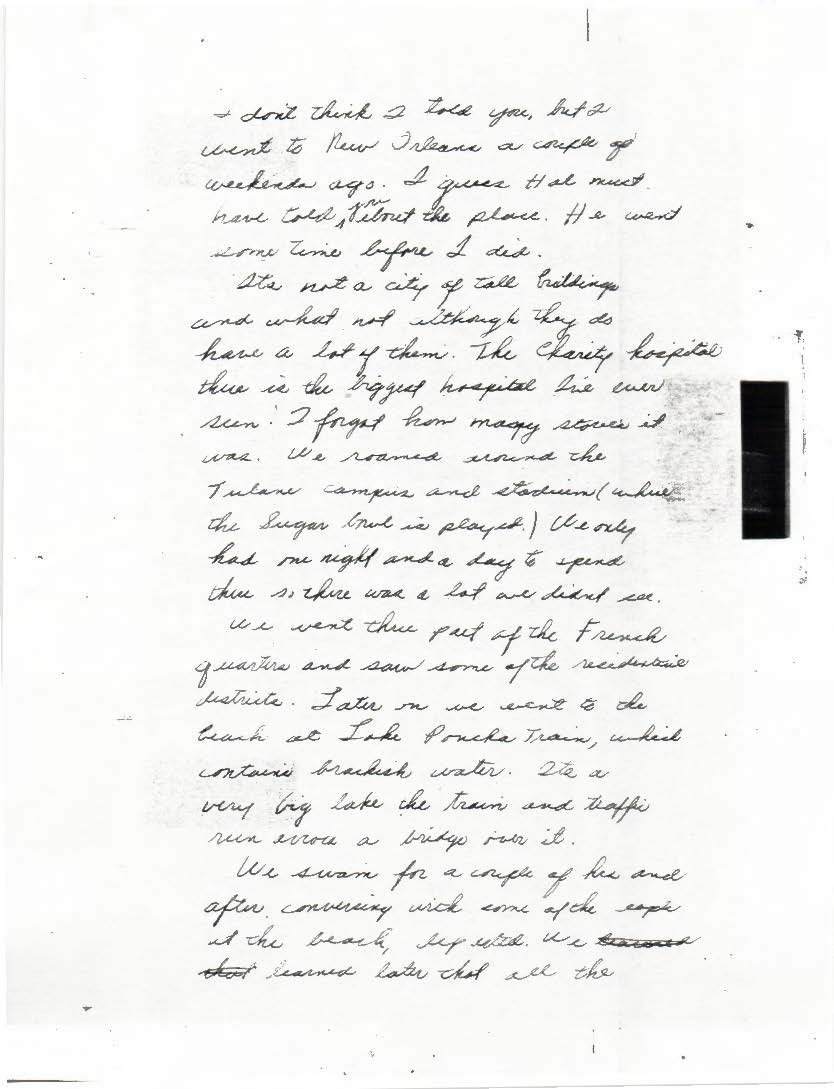 I don't think I told you, but I
went to New Orleans a couple of
weekends ago. I guess Hal must
have told you about the place. He went
some time before I did.
Its not a city of tall buildings
and what not although they do
have a lot of them. The Charity hospital
there is the biggest hospital I've ever
seen. I forgot how many stories it
was. We roamed around the
Tulane campus and stadium (where
the Sugar bowl is played.) We only
had one night and a day to spend
there so there was a lot we didnt see.
We went thru part of the French
quarters and saw some of the residential
districts. Later on we went to the
beach at Lake Poncha Train, which
contains brackish water. Its a
very big lake the train and traffic
run across a bridge over it.
We swam for a couple of hrs and
after conversing with some of the
at the beach, We learned
that learned later that all the